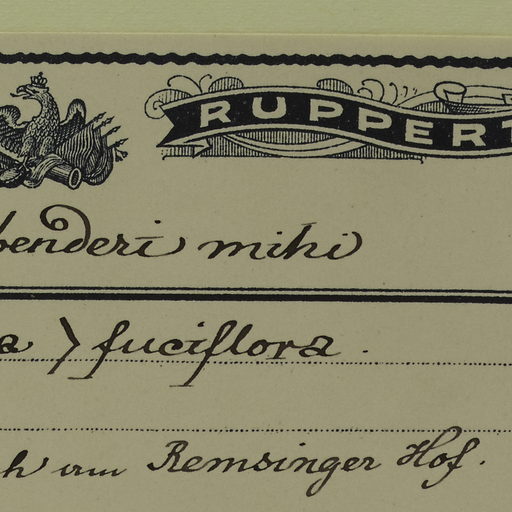 RUPPERT
benderi mihi
a > fuciflora.
h am Remsinger Hof.